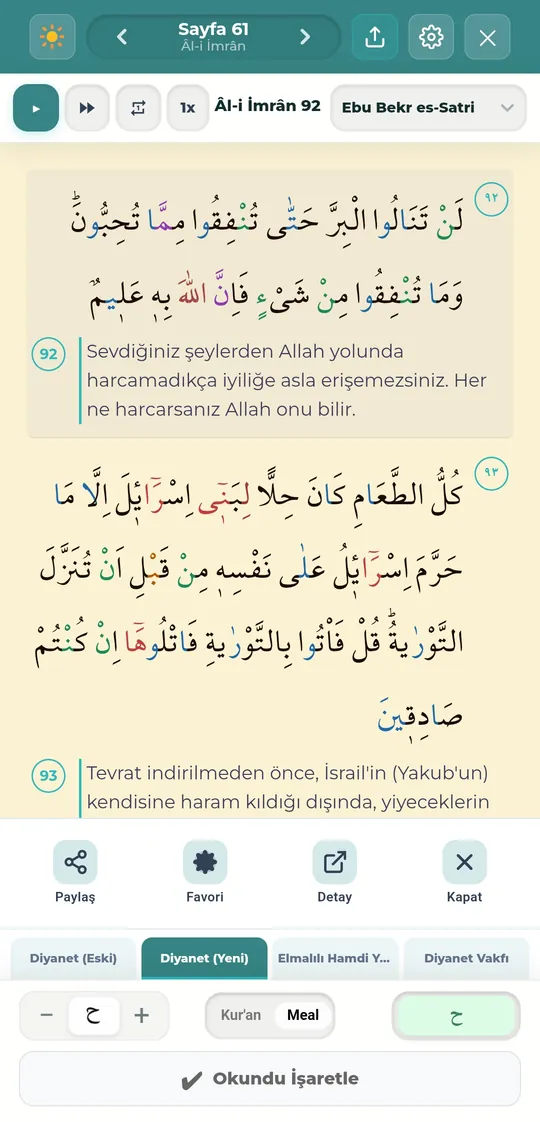 Sayfa 61
Âl-i İmrân
1x
Âl-i İmrân 92
Ebu Bekr es-Satri
٩٢
لَنْ تَنَالُوا الْبِرَّ حَتّٰى تُنْفِقُوا مِمَّا تُحِبُّونَۜ
وَمَا تُنْفِقُوا مِنْ شَىْءٍ فَاِنَّ اللّٰهَ بِهٖ عَلٖيمٌ
92
Sevdiğiniz şeylerden Allah yolunda
harcamadıkça iyiliğe asla erişemezsiniz. Her
ne harcarsanız Allah onu bilir.
٩٣
كُلُّ الطَّعَامِ كَانَ حِلًّا لِبَنٖٓى اِسْرَٓائٖلَ اِلَّا مَا
حَرَّمَ اِسْرَٓائٖلُ عَلٰى نَفْسِهٖ مِنْ قَبْلِ اَنْ تُنَزَّلَ
التَّوْرٰيةُۜ قُلْ فَاْتُوا بِالتَّوْرٰيةِ فَاتْلُوهَٓا اِنْ كُنْتُمْ
صَادِقٖينَ
93
Tevrat indirilmeden önce, İsrail'in (Yakub'un)
kendisine haram kıldığı dışında, yiyeceklerin
Paylaş
Favori
Detay
Kapat
Diyanet (Eski)
Diyanet (Yeni)
Elmalılı Hamdi Y...
Diyanet Vakfı
− ح +
Kur'an
Meal
ح
Okundu İşaretle